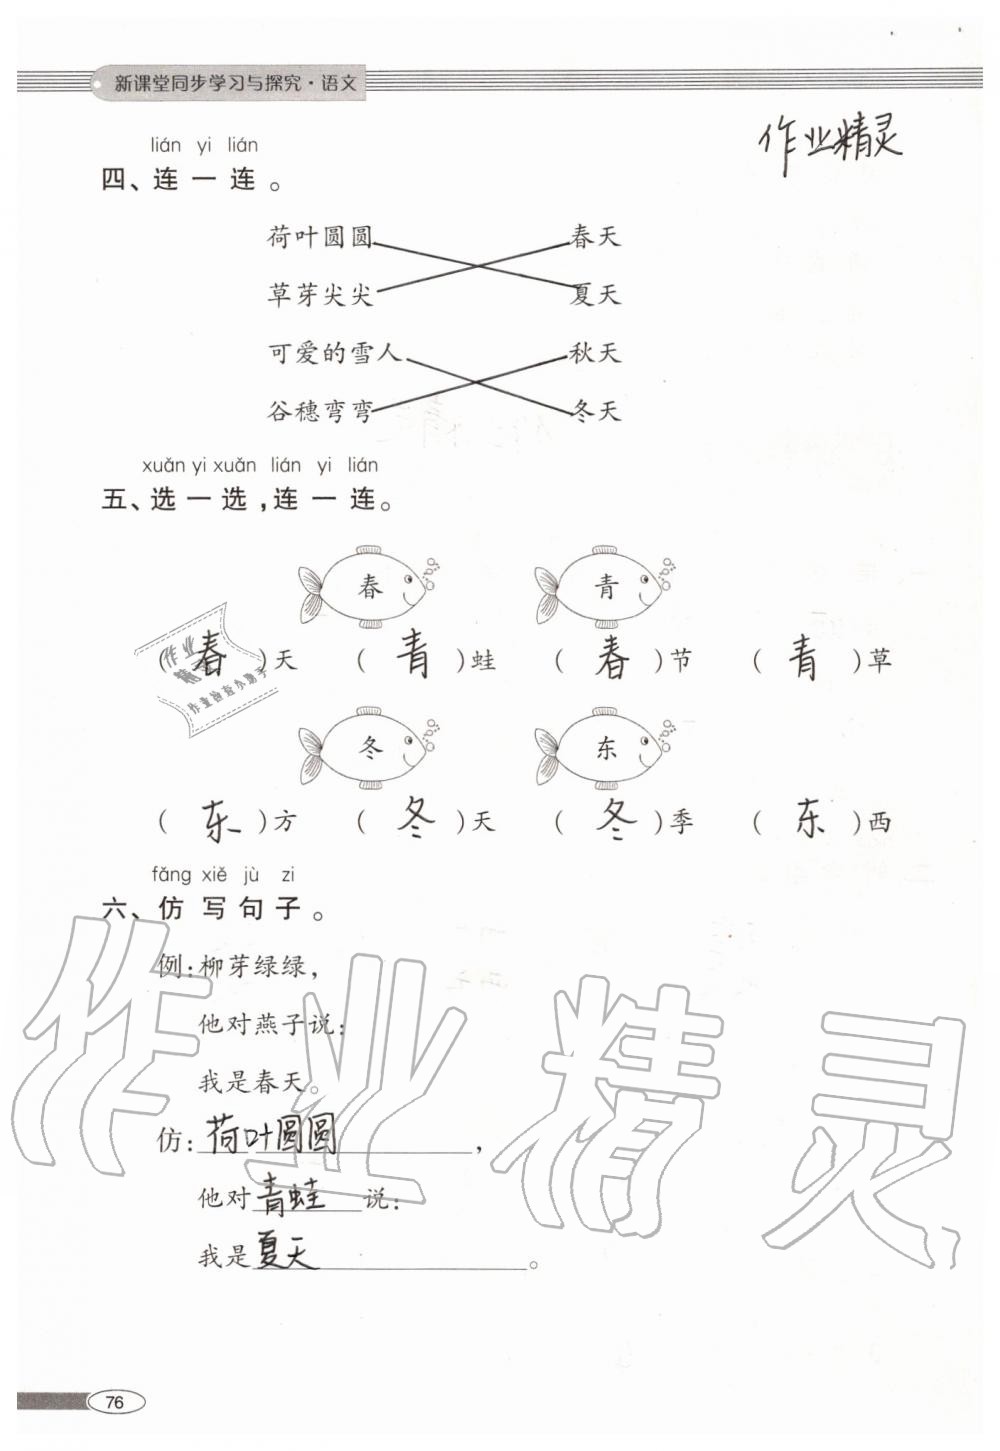 新课堂同步学习与探究·语文
作业精灵
lián yi lián
四、连一连。
荷叶圆圆 春天
草芽尖尖 夏天
可爱的雪人 秋天
谷穗弯弯 冬天
xuǎn yi xuǎn lián yi lián
五、选一选,连一连。
春 青
(春)天 (青)蛙 (春)节 (青)草
作业
精灵
作业检查小助手
冬 东
(东)方 (冬)天 (冬)季 (东)西
fǎng xiě jù zi
六、仿写句子。
例:柳芽绿绿,
他对燕子说:
我是春天。
仿:荷叶圆圆,
他对青蛙说:
我是夏天。
作业精灵
76